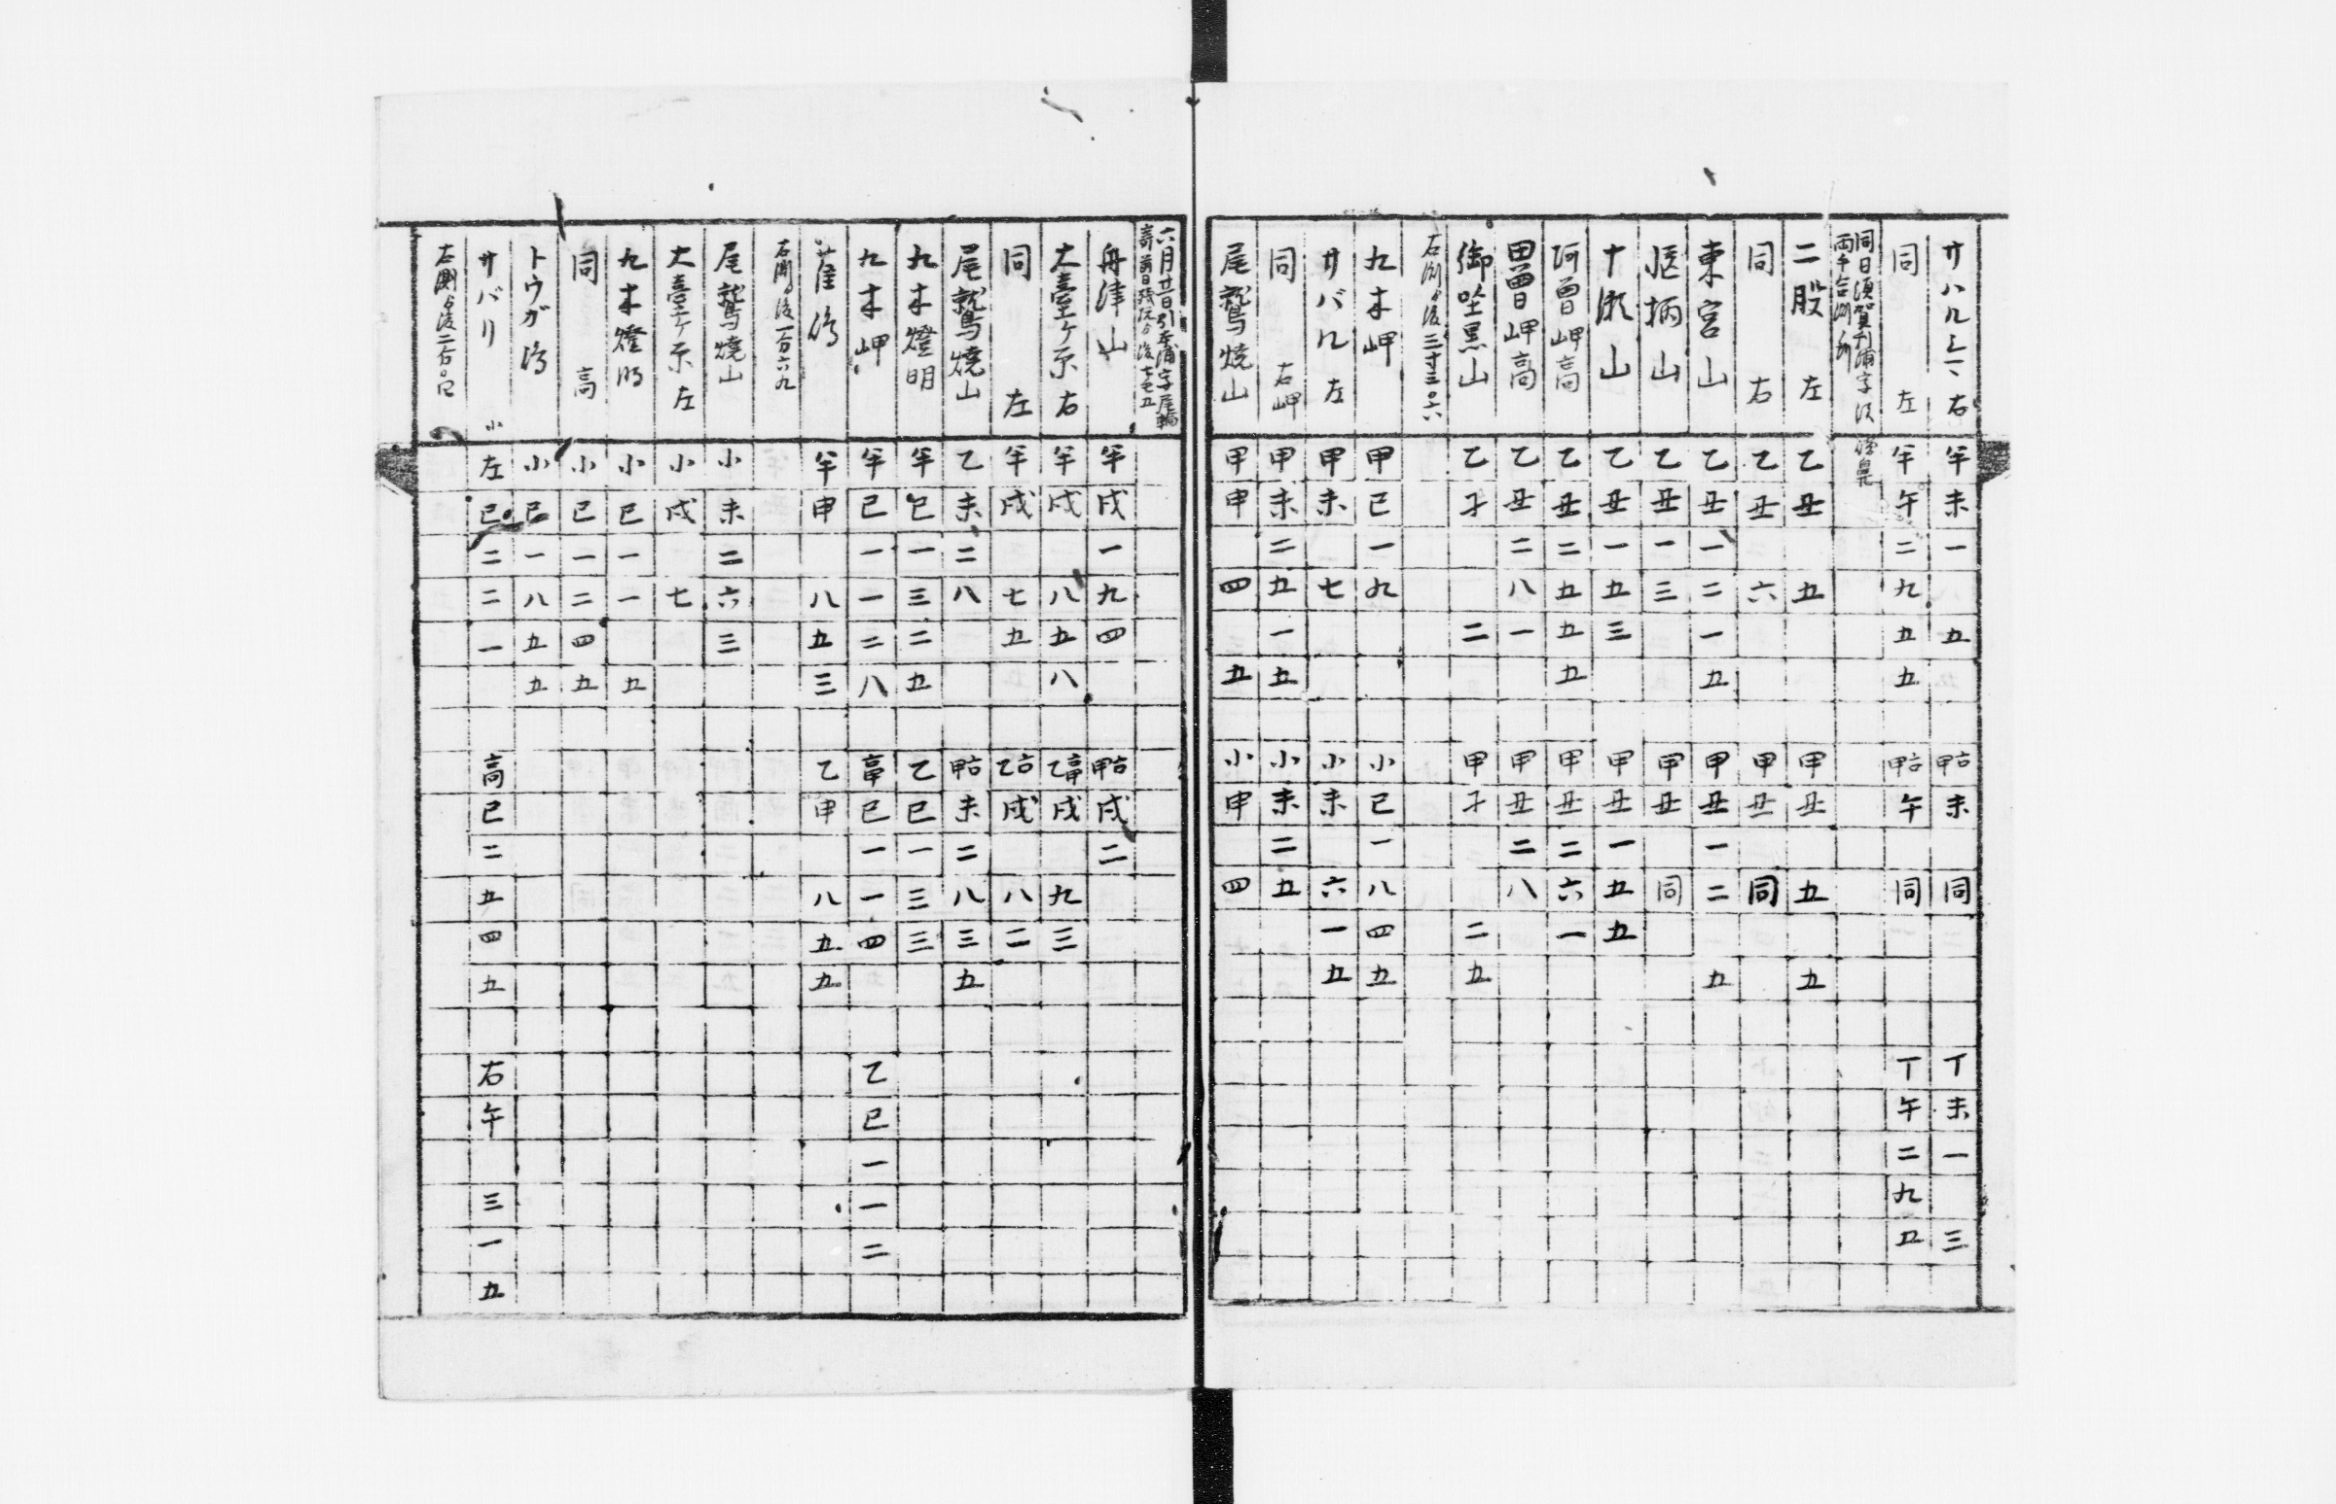 サハル 右 半 未 一 五 甲右 未 同 丁 未 一 三
同 左 半 午 二 九 五 五 甲右 午 同 丁 午 二 九 五
同日須賀利浦字
両手合測所
二股 左 乙 丑 五 甲 丑 五 五
同 右 乙 丑 六 甲 丑 同
東宮山 乙 丑 一 二 一 五 甲 丑 一 二 五
柄山 乙 丑 一 三 甲 丑 同
十瀬山 乙 丑 一 五 三 甲 丑 一 五 五
阿曽岬高 乙 丑 二 五 五 五 甲 丑 二 六 一
田曽岬高 乙 丑 二 八 一 甲 丑 二 八
御坐黒山 乙 子 二 甲 子 二 五
右測ゟ後三寸三
九木岬 甲 巳 一 九 小 巳 一 八 四 五
サバル 左 甲 未 七 小 未 六 一 五
同 右岬 甲 未 二 五 一 五 小 未 二 五
尾鷲焼山 甲 申 四 五 小 申 四
六月廿日引本浦字尾
舟津山 半 戌 一 九 四 甲右 戌 二
大臺ケ原 右 半 戌 八 五 八 戌 九 三
同 左 半 戌 七 五 乙右 戌 八 二
尾鷲焼山 乙 未 二 八 甲右 未 二 八 三 五
九木燈明 半 巳 一 三 二 五 乙 巳 一 三 三
九木岬 半 巳 一 一 二 八 巳 一 一 四 乙 巳 一 一 二
雀嶋 半 申 八 五 三 乙 申 八 五 五
右測ゟ後一分六九
尾鷲焼山 小 未 二 六 三
大臺ケ原 左 小 戌 七
九木燈明 小 巳 一 一 五
同 高 小 巳 一 二 四 五
トウガ嶋 小 巳 一 八 五 五
サバリ 小 左 巳 二 二 一 高 巳 二 五 四 五 右 午 三 一 五
右測ゟ後二分